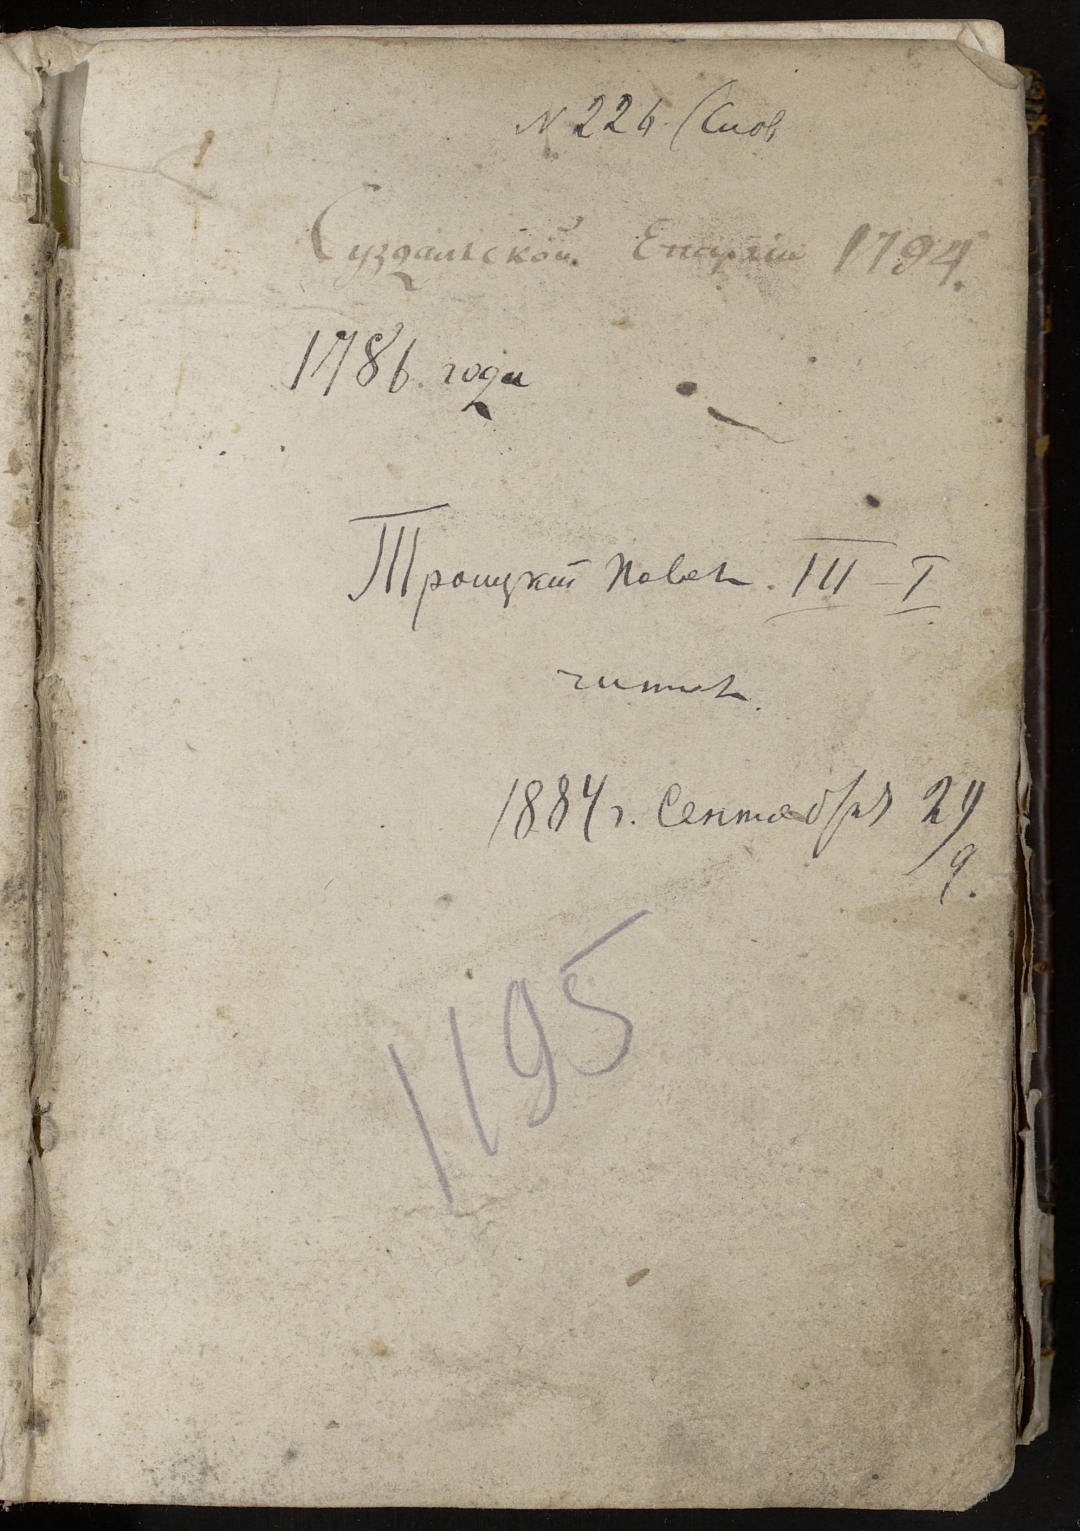 N 226. (Спов
Суздальской Епархіи 1794.
1786. года
Троицкій III – I
читой
1884 г. Сентября 29
9.
1195